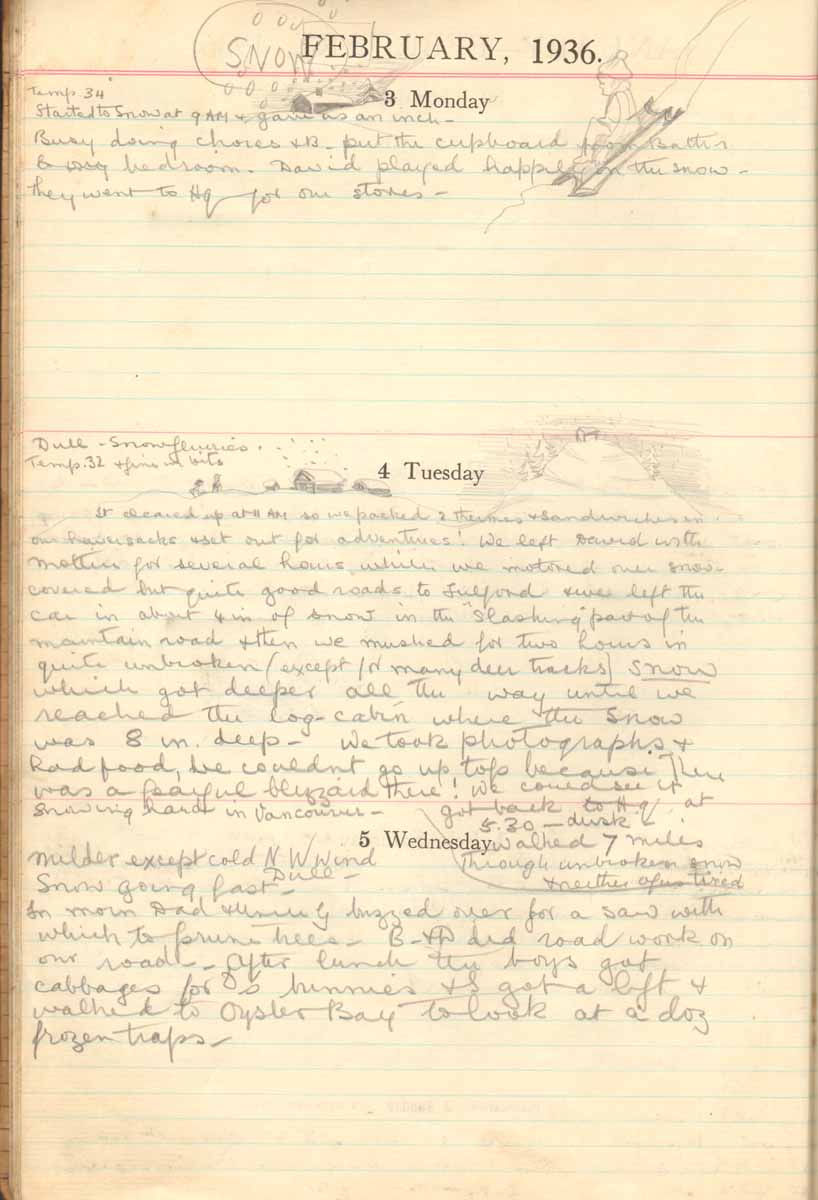 SNOW
FEBRUARY, 1936.
Temp. 34
3 Monday
Started to Snow at 9 AM & gave us an inch -
Busy doing chores & B. put the cupboard from Bath r
to bedroom. David played happily in the snow -
they went to Hq for our stores -
Dull - Snowflurries.
Temp. 32 & fine in bits
4 Tuesday
It cleared up at 11 AM so we packed 2 thermos & Sandwiches in
our haversacks & set out for adventures! We left David with
Mother for several hours while we motored over snow
covered but quite good roads to Fulford & we left the
car in about 4 in of snow in the "Slashing" part of the
mountain road & then we mushed for two hours in
quite unbroken (except for many deer tracks) snow
which got deeper all the way until we
reached the log-cabin where the snow
was 8 in. deep - We took photographs &
had food, we couldn't go up top because there
was a fearful blizzard there! We could see it
snowing hard in Vancouver -
got back to Hq at
5.30 - dusk
walked 7 miles
through unbroken snow
& neither of us tired
5 Wednesday
Milder except cold N W Wind
Dull -
Snow going fast -
In morn Dad & buzzed over for a saw with
which to prune trees - B & D did road work on
our road - After lunch the boys got
cabbages for D's bunnies & I got a lift &
walked to Oyster Bay to look at a doz
frozen traps -